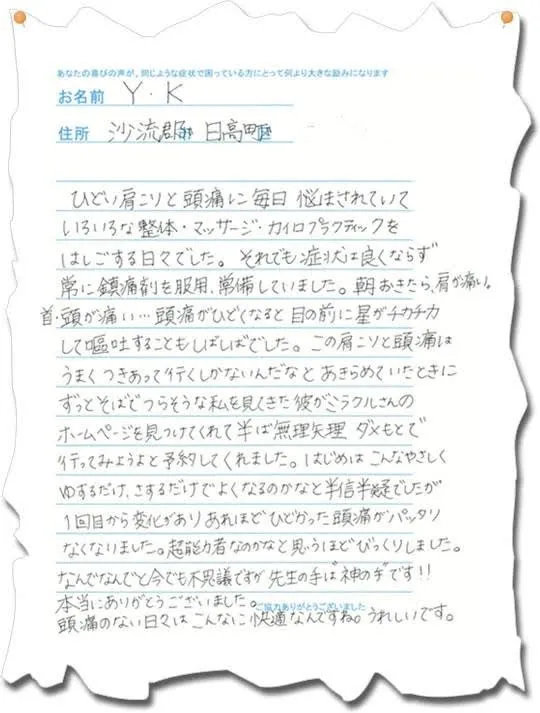 あなたの喜びの声が、同じような症状で困っている方にとって何より大きな励みになります
お名前 Y・K
住所 沙流郡 日高町
ひどい肩こりと頭痛に毎日 悩まされていて
いろいろな整体・マッサージ・カイロプラクティックを
はしごする日々でした。それでも症状は良くならず
常に鎮痛剤を服用、常備していました。朝おきたら、肩が痛い。
首・頭が痛い…頭痛がひどくなると目の前に星がチカチカ
して嘔吐することもしばしばでした。この肩こりと頭痛は
うまくつきあって行くしかないんだなとあきらめていたときに
ずっとそばでつらそうな私を見てきた彼がミラクルさんの
ホームページを見つけてくれて半ば無理矢理 ダメもとで
行ってみようよと予約してくれました。はじめはこんなやさしく
ゆするだけ、さするだけでよくなるのかなと半信半疑でしたが
1回目から変化がありあれほどひどかった頭痛がパッタリ
なくなりました。超能力者なのかなと思うほどびっくりしました。
なんでなんでと今でも不思議ですが先生の手は"神の手"です!!
本当にありがとうございました。
ご協力ありがとうございました
頭痛のない日々はこんなに快適なんですね。うれしいです。